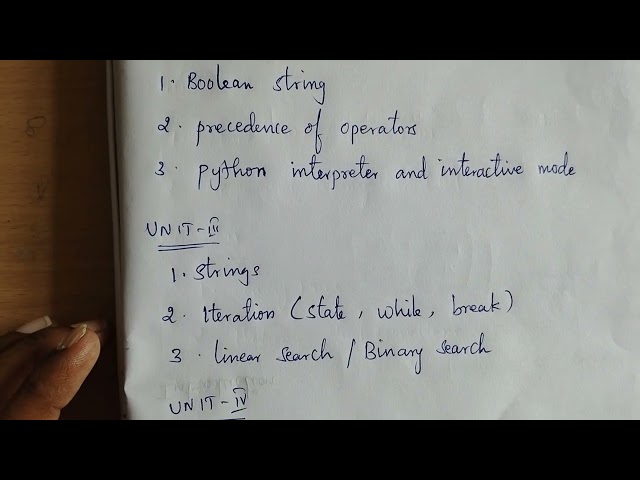 1. Boolean string
2. precedence of operators
3. python interpreter and interactive mode
UNIT-III
1. Strings
2. Iteration (state, while, break)
3. linear search / Binary search
UNIT-IV